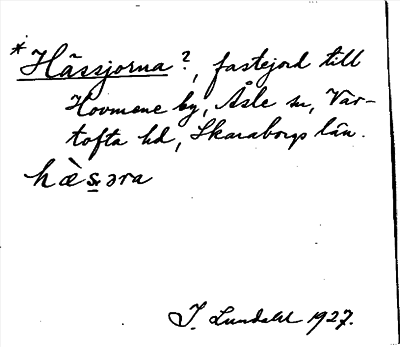 *Hässjorna?, fastejord till
Hovmene by, Åsle sn, Var-
tofta hd, Skaraborgs län.
hæ̀s̲əra
J. Lundahl 1927.